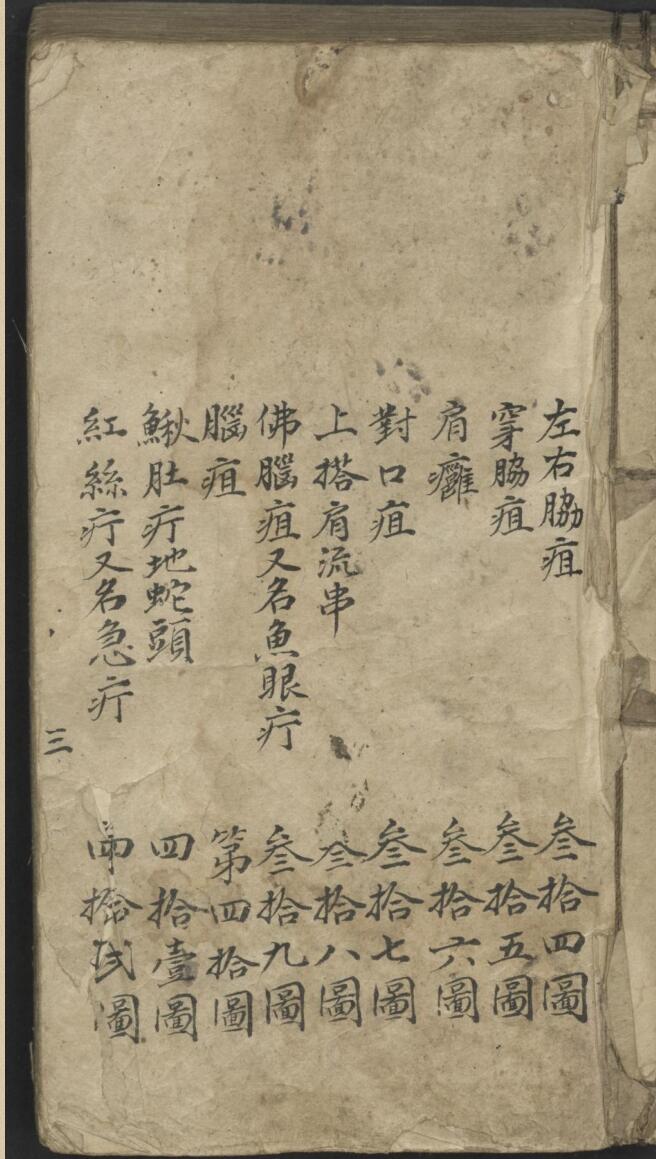 左右脇疽 叁拾四圖
穿脇疽 叁拾五圖
肩癰 叁拾六圖
對口疽 叁拾七圖
上搭肩流串 叁拾八圖
佛腦疽又名魚眼疔 叁拾九圖
腦疽 第四拾圖
鰍肚疔地蛇頭 四拾壹圖
紅絲疔又名急疔 拾弍圖
三